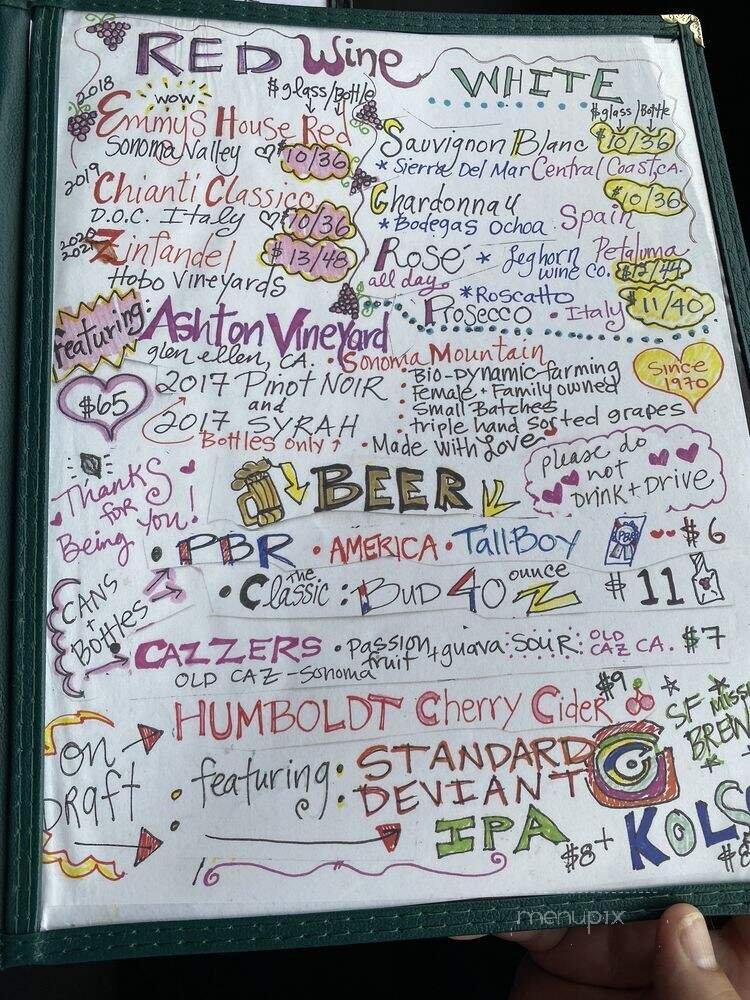 RED Wine
$glass/Bottle
2018
wow
Emmys House Red
Sonoma Valley $10/36
2019
Chianti Classico
D.O.C. Italy $10/36
2020
Zinfandel $13/48
Hobo Vineyards
WHITE
$glass/Bottle
Sauvignon Blanc $10/36
*Sierra Del Mar Central Coast, CA.
Chardonnay $10/36
*Bodegas Ochoa Spain
Rosé * Leghorn Petaluma
all day wine co.
*Roscatto
Prosecco • Italy $11/40
Featuring: Ashton Vineyard
glen ellen, CA. • Sonoma Mountain
$65
2017 Pinot NOIR
and
2017 SYRAH
Bottles only ↑
• Bio-dynamic farming
• Female + Family owned
• Small Batches
• triple hand sorted grapes
• Made with Love
Since
1970
Thanks
for
Being You!
BEER
please do
not
Drink + Drive
CANS
+
Bottles
• PBR • AMERICA • Tall-Boy PBR -- $6
• The Classic: Bud 40 ounce $11
CAZZERS • passion fruit + guava: sour: OLD CAZ CA. $7
OLD CAZ - Sonoma
on
Draft
HUMBOLDT Cherry Cider $9
• featuring: STANDARD
DEVIANT
SF Miss
BREW
IPA $8+
KOLS
menupix